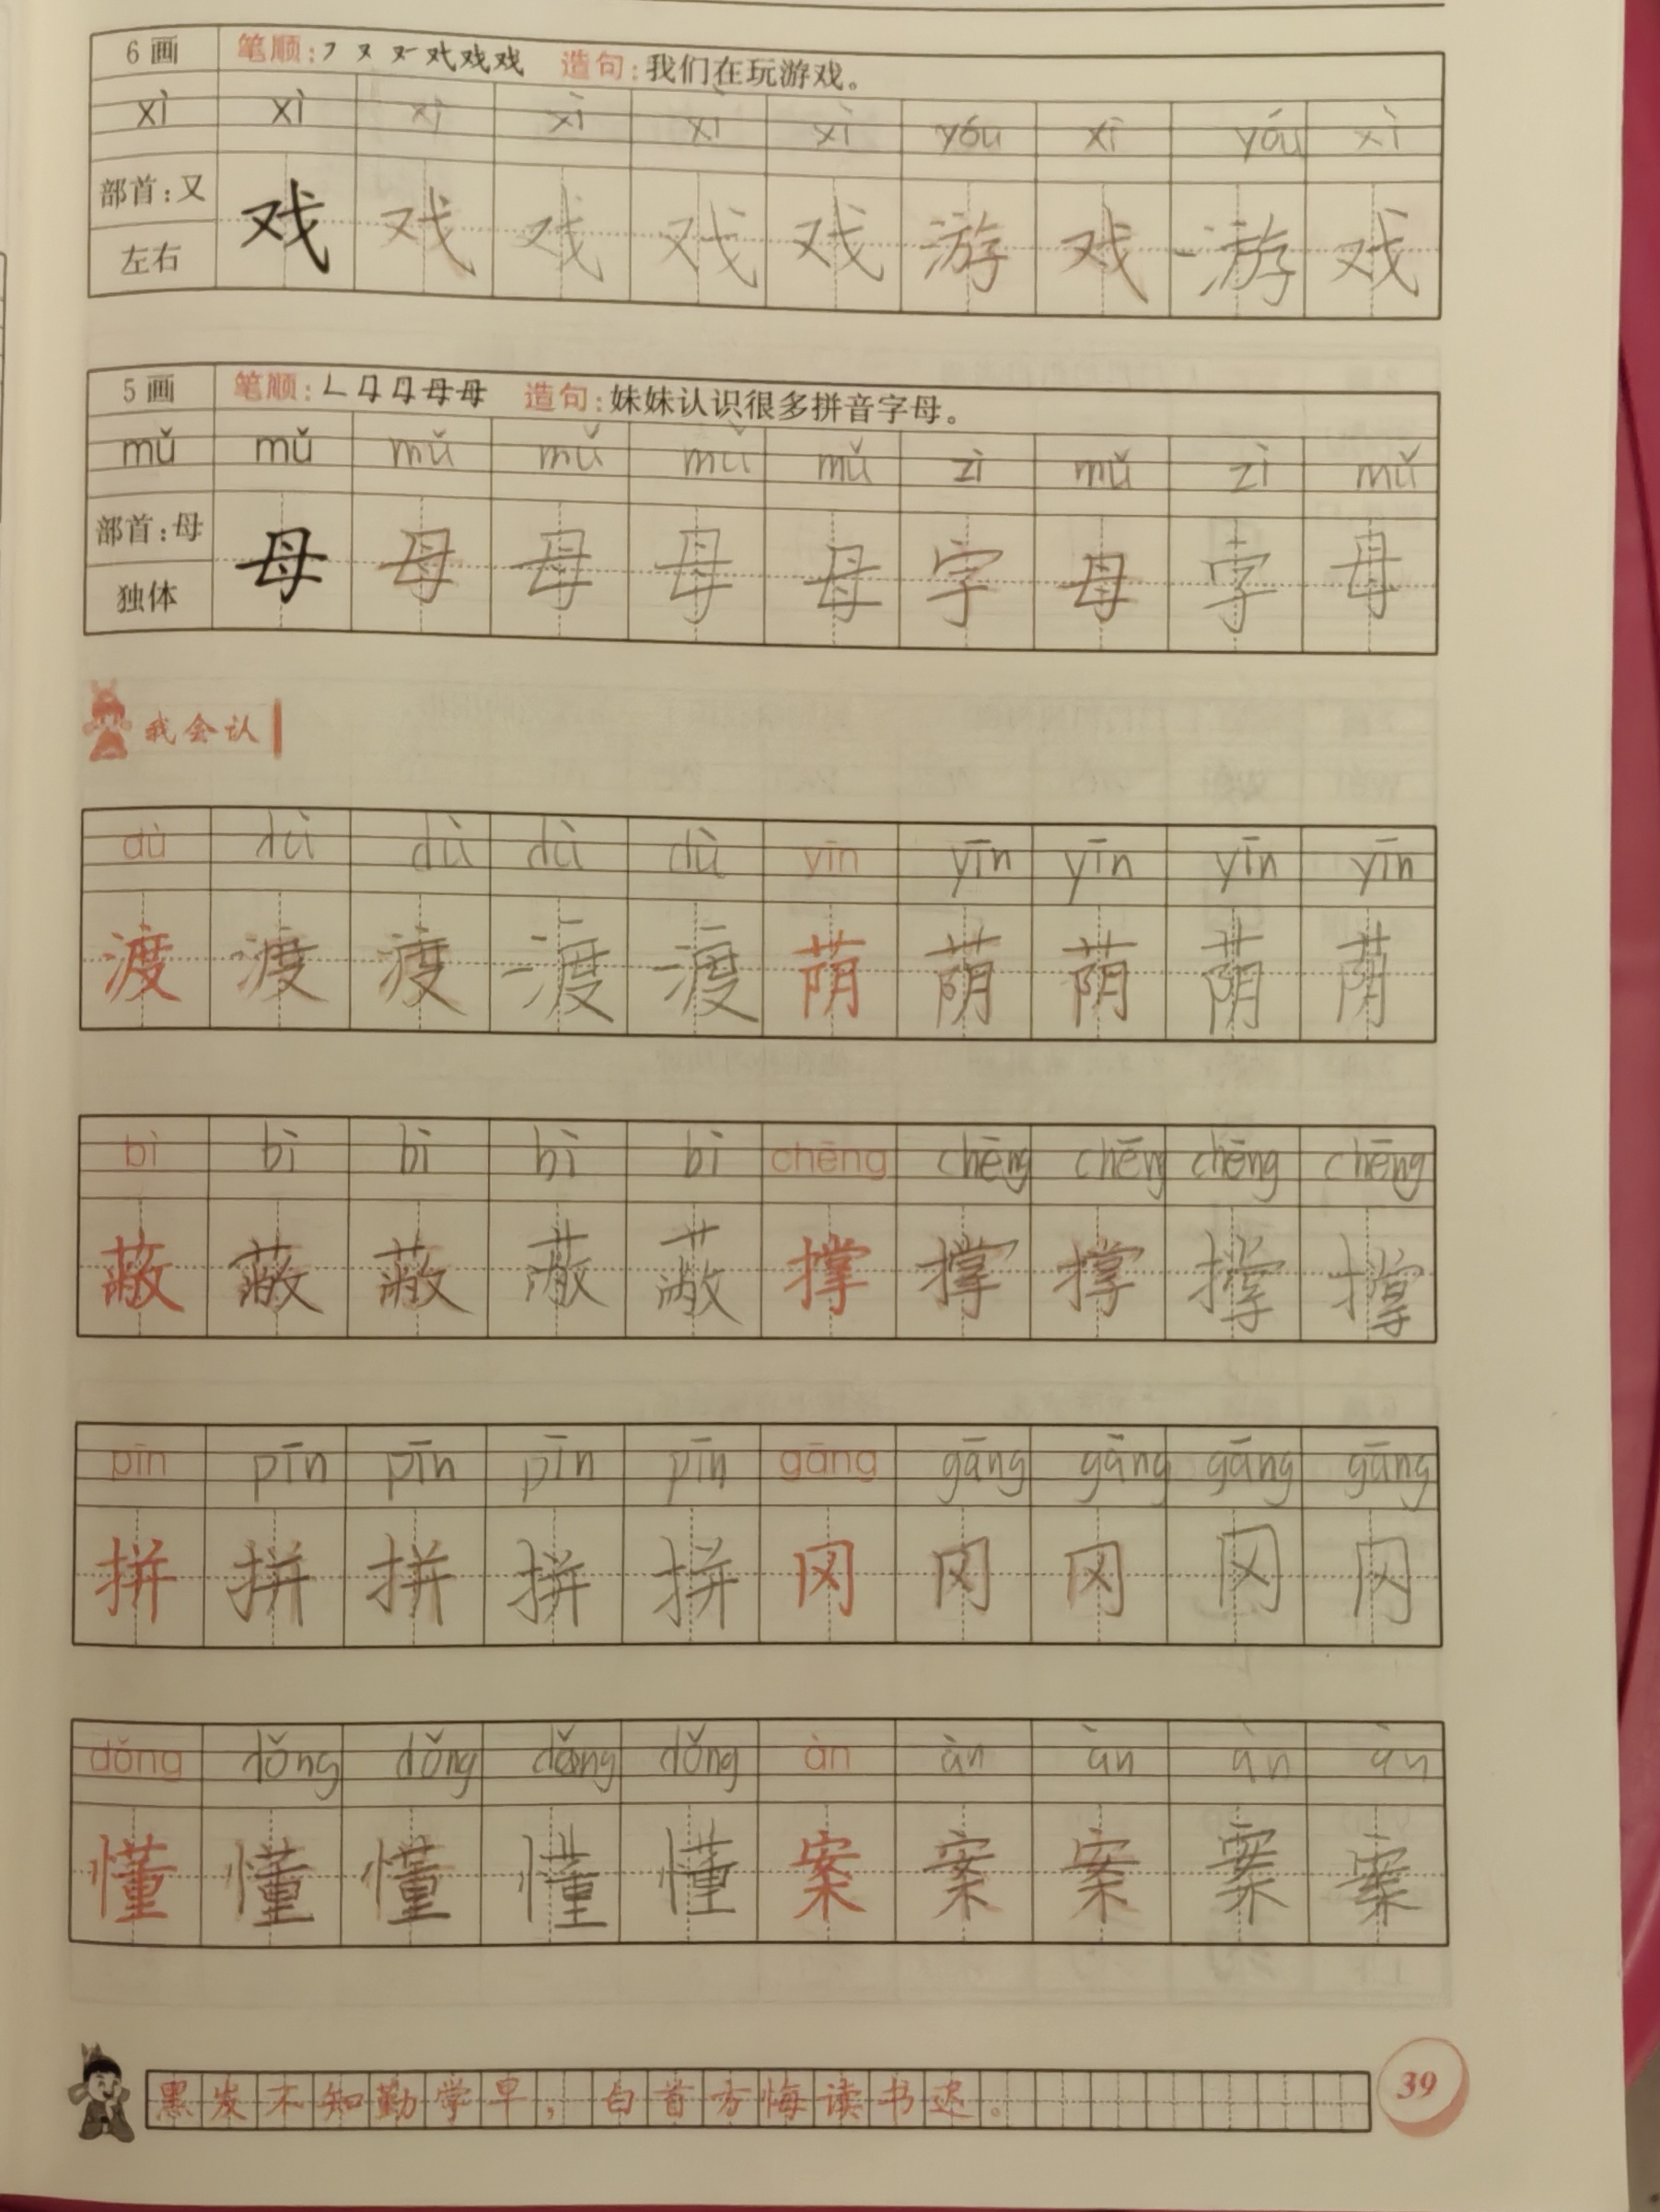 6画 笔顺: 造句:我们在玩游戏。
xì xì xì xì xì xì yóu xì yóu xì
部首:又 戏 戏 戏 戏 戏 游 戏 游 戏
左右
5画 笔顺: 造句:妹妹认识很多拼音字母。
mǔ mǔ mǔ mǔ mǔ mǔ zì mǔ zì mǔ
部首:母 母 母 母 母 母 字 母 字 母
独体
我会认
dù dù dù dù dù yīn yīn yīn yīn yīn
渡 渡 渡 渡 渡 荫 荫 荫 荫 荫
bì bì bì bì bì chēng chēng chēng chēng chēng
蔽 蔽 蔽 蔽 蔽 撑 撑 撑 撑 撑
pīn pīn pīn pīn pīn gāng gāng gāng gāng gāng
拼 拼 拼 拼 拼 冈 冈 冈 冈 冈
dǒng dǒng dǒng dǒng dǒng àn àn àn àn àn
懂 懂 懂 懂 懂 案 案 案 案 案
黑发不知勤学早，白首方悔读书迟。
39